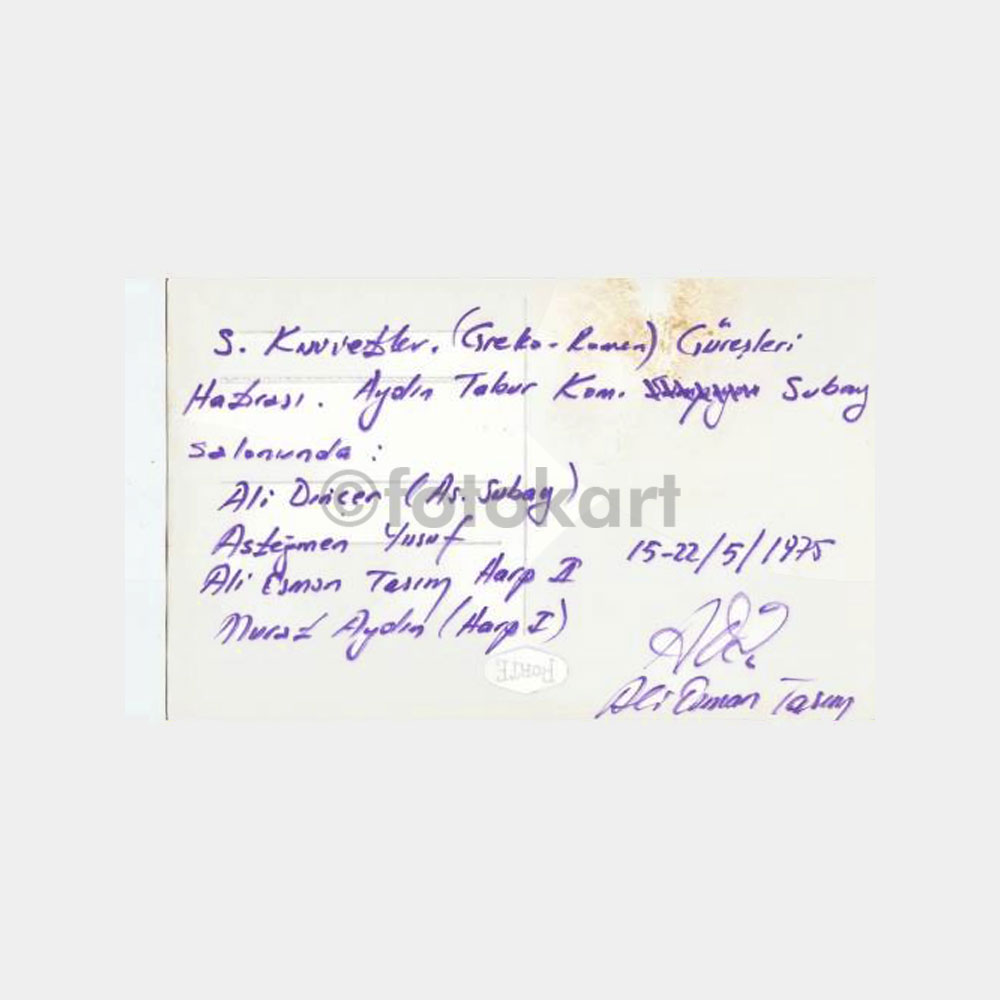 S. Kuvvetler. (Greko-Romen) Güreşleri
Hatırası. Aydın Tabur Kom. Subay
salonunda :
Ali Dinçer (As. Subay)
Asteğmen Yusuf
Ali Osman Taşım Harp II
Murat Aydın (Harp I)
15-22/5/1975
Ali Osman Taşım
FORTE
©fotokart